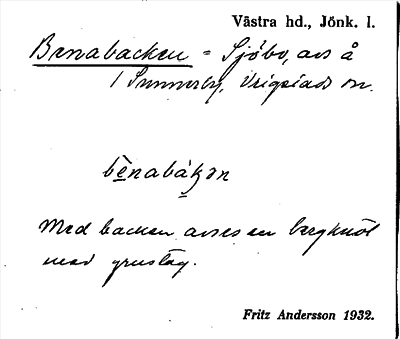 Västra hd., Jönk. l.
Benabacken = Sjöbo, avs å
1 Sunnerby, Vrigstads sn.
bènabákən
Med backen avses en bergknöl
med grustag.
Fritz Andersson 1932.